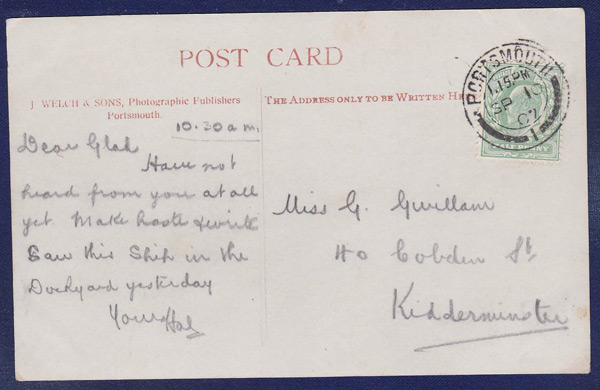 POST CARD
J. WELCH & SONS, Photographic Publishers
Portsmouth.
THE ADDRESS ONLY TO BE WRITTEN HE
PORTSMOUTH
1.15PM
SP 10
07
1
HALF PENNY
10.30 a.m.
Dear Glad
Have not
heard from you at all
yet. Make haste & write
Saw this Ship in the
Dockyard yesterday
Yours Hal
Miss G. Gwillam
40 Cobden St
Kidderminster